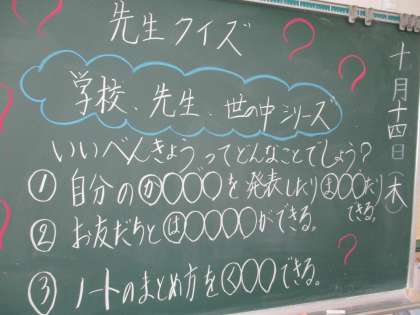 先生クイズ
学校、先生、世の中シリーズ
いいべんきょうってどんなことでしょう?
① 自分のか○○゛○を発表したりよ○○たり
できる。
② お友だちとは○○○○ができる。
③ ノートのまとめ方をく○○できる。
十月十四日(木)